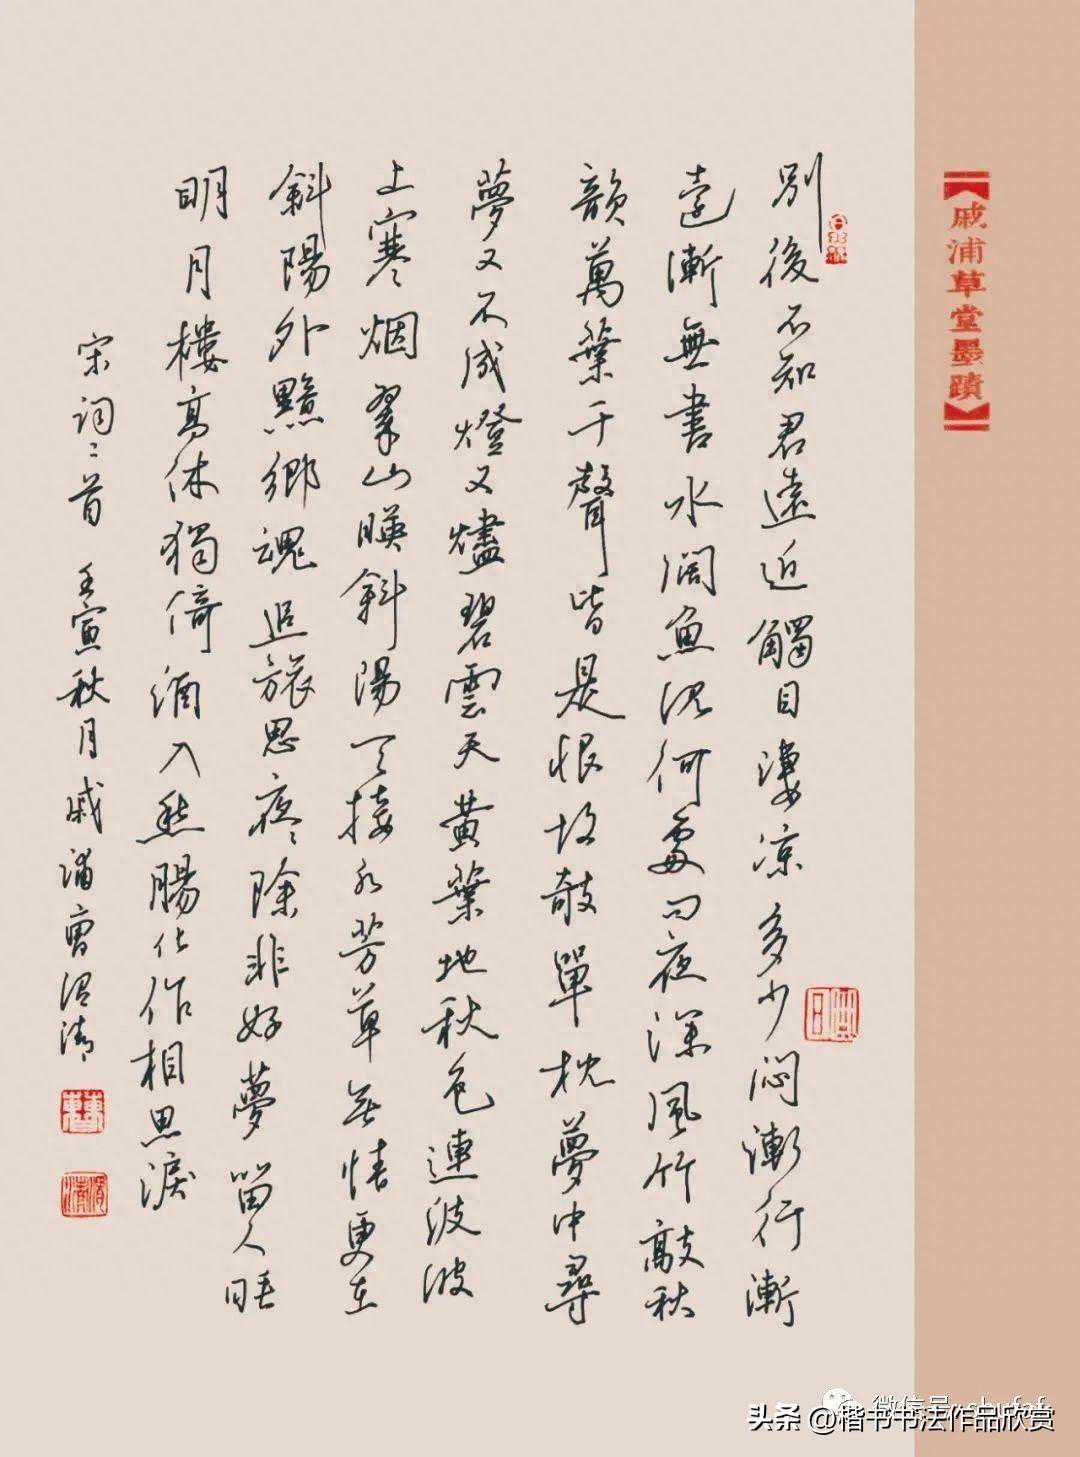 【戚浦草堂墨蹟】
別後不知君遠近觸目凄涼多少悶漸行漸
遠漸無書水闊魚沉何處問夜深風竹敲秋
韻萬葉千聲皆是恨故敧單枕夢中尋
夢又不成燈又燼碧雲天黃葉地秋色連波波
上寒烟翠山映斜陽天接水芳草無情更在
斜陽外黯鄉魂追旅思夜〻除非好夢留人睡
明月樓高休獨倚酒入愁腸化作相思淚
宋詞二首 壬寅秋月戚浦曹渭清
微信号
头条 @楷书书法作品欣赏